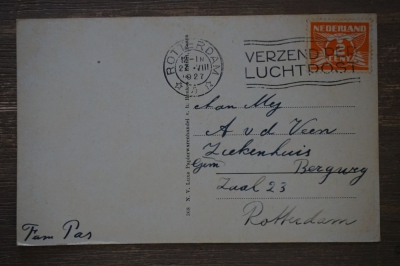 ROTTERDAM
2 VIII
1927
VERZEND PER
LUCHTPOST
NEDERLAND
2
CENT
Aan Mej
A v d Veen
Ziekenhuis
Bergweg
Zaal 23
Rotterdam
Fam Pas